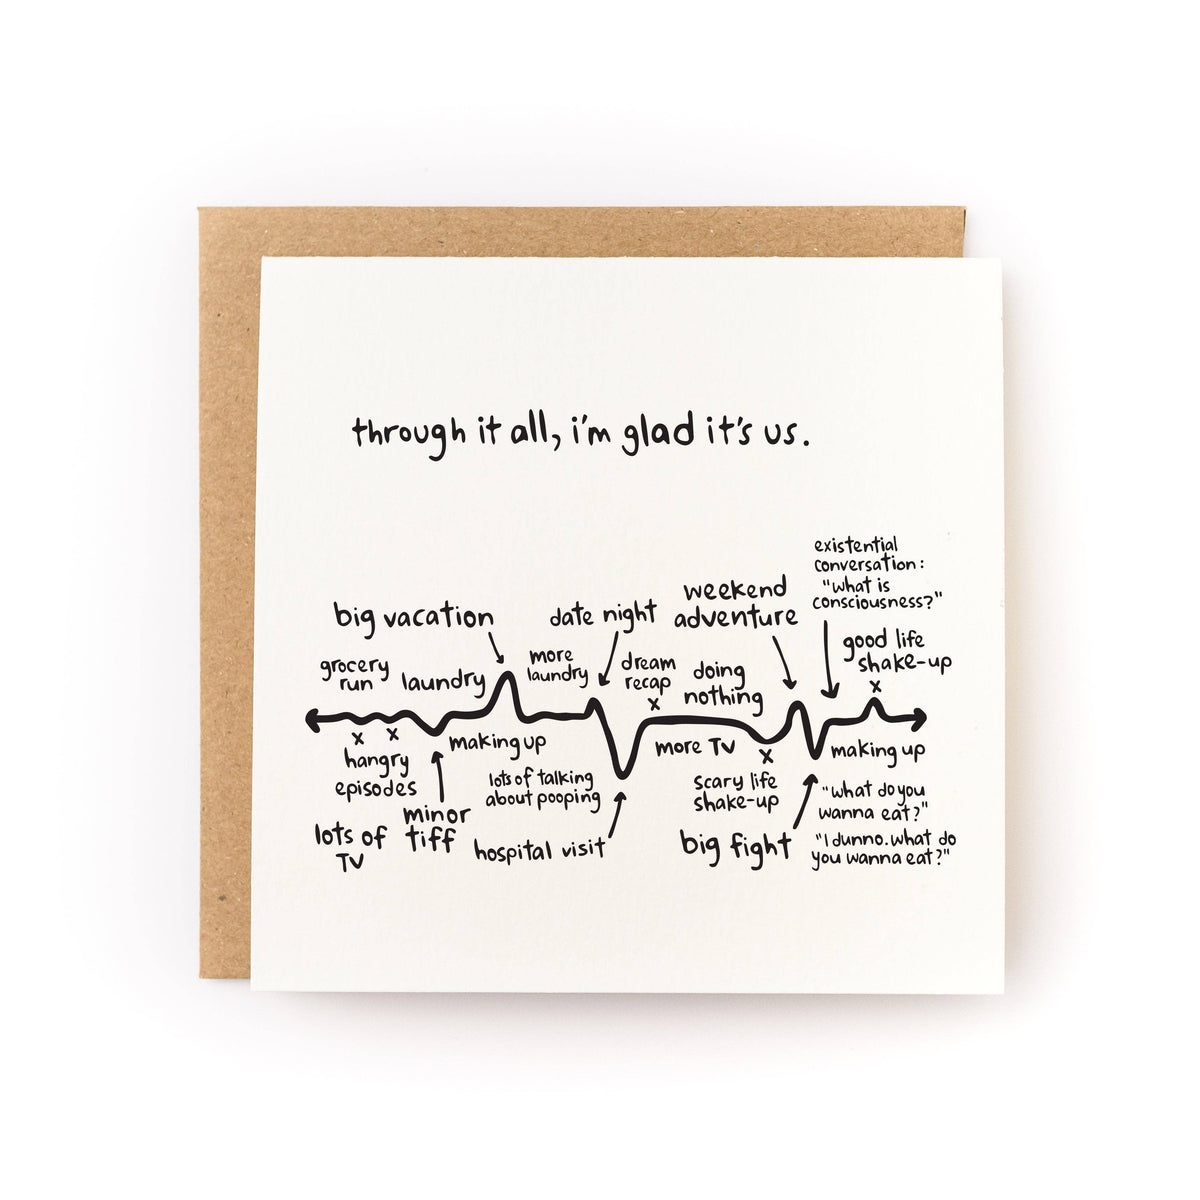 through it all, i'm glad it's us.
existential
conversation:
"what is
consciousness?"
weekend
adventure
big vacation
date night
good life
shake-up
grocery
run
laundry
more
laundry
dream
recap
x
doing
nothing
x
x x
hangry
episodes
making up
more TV
x
making up
lots of talking
about pooping
scary life
shake-up
"what do you
wanna eat?"
minor
tiff
lots of
TV
hospital visit
big fight
"I dunno. what do
you wanna eat?"